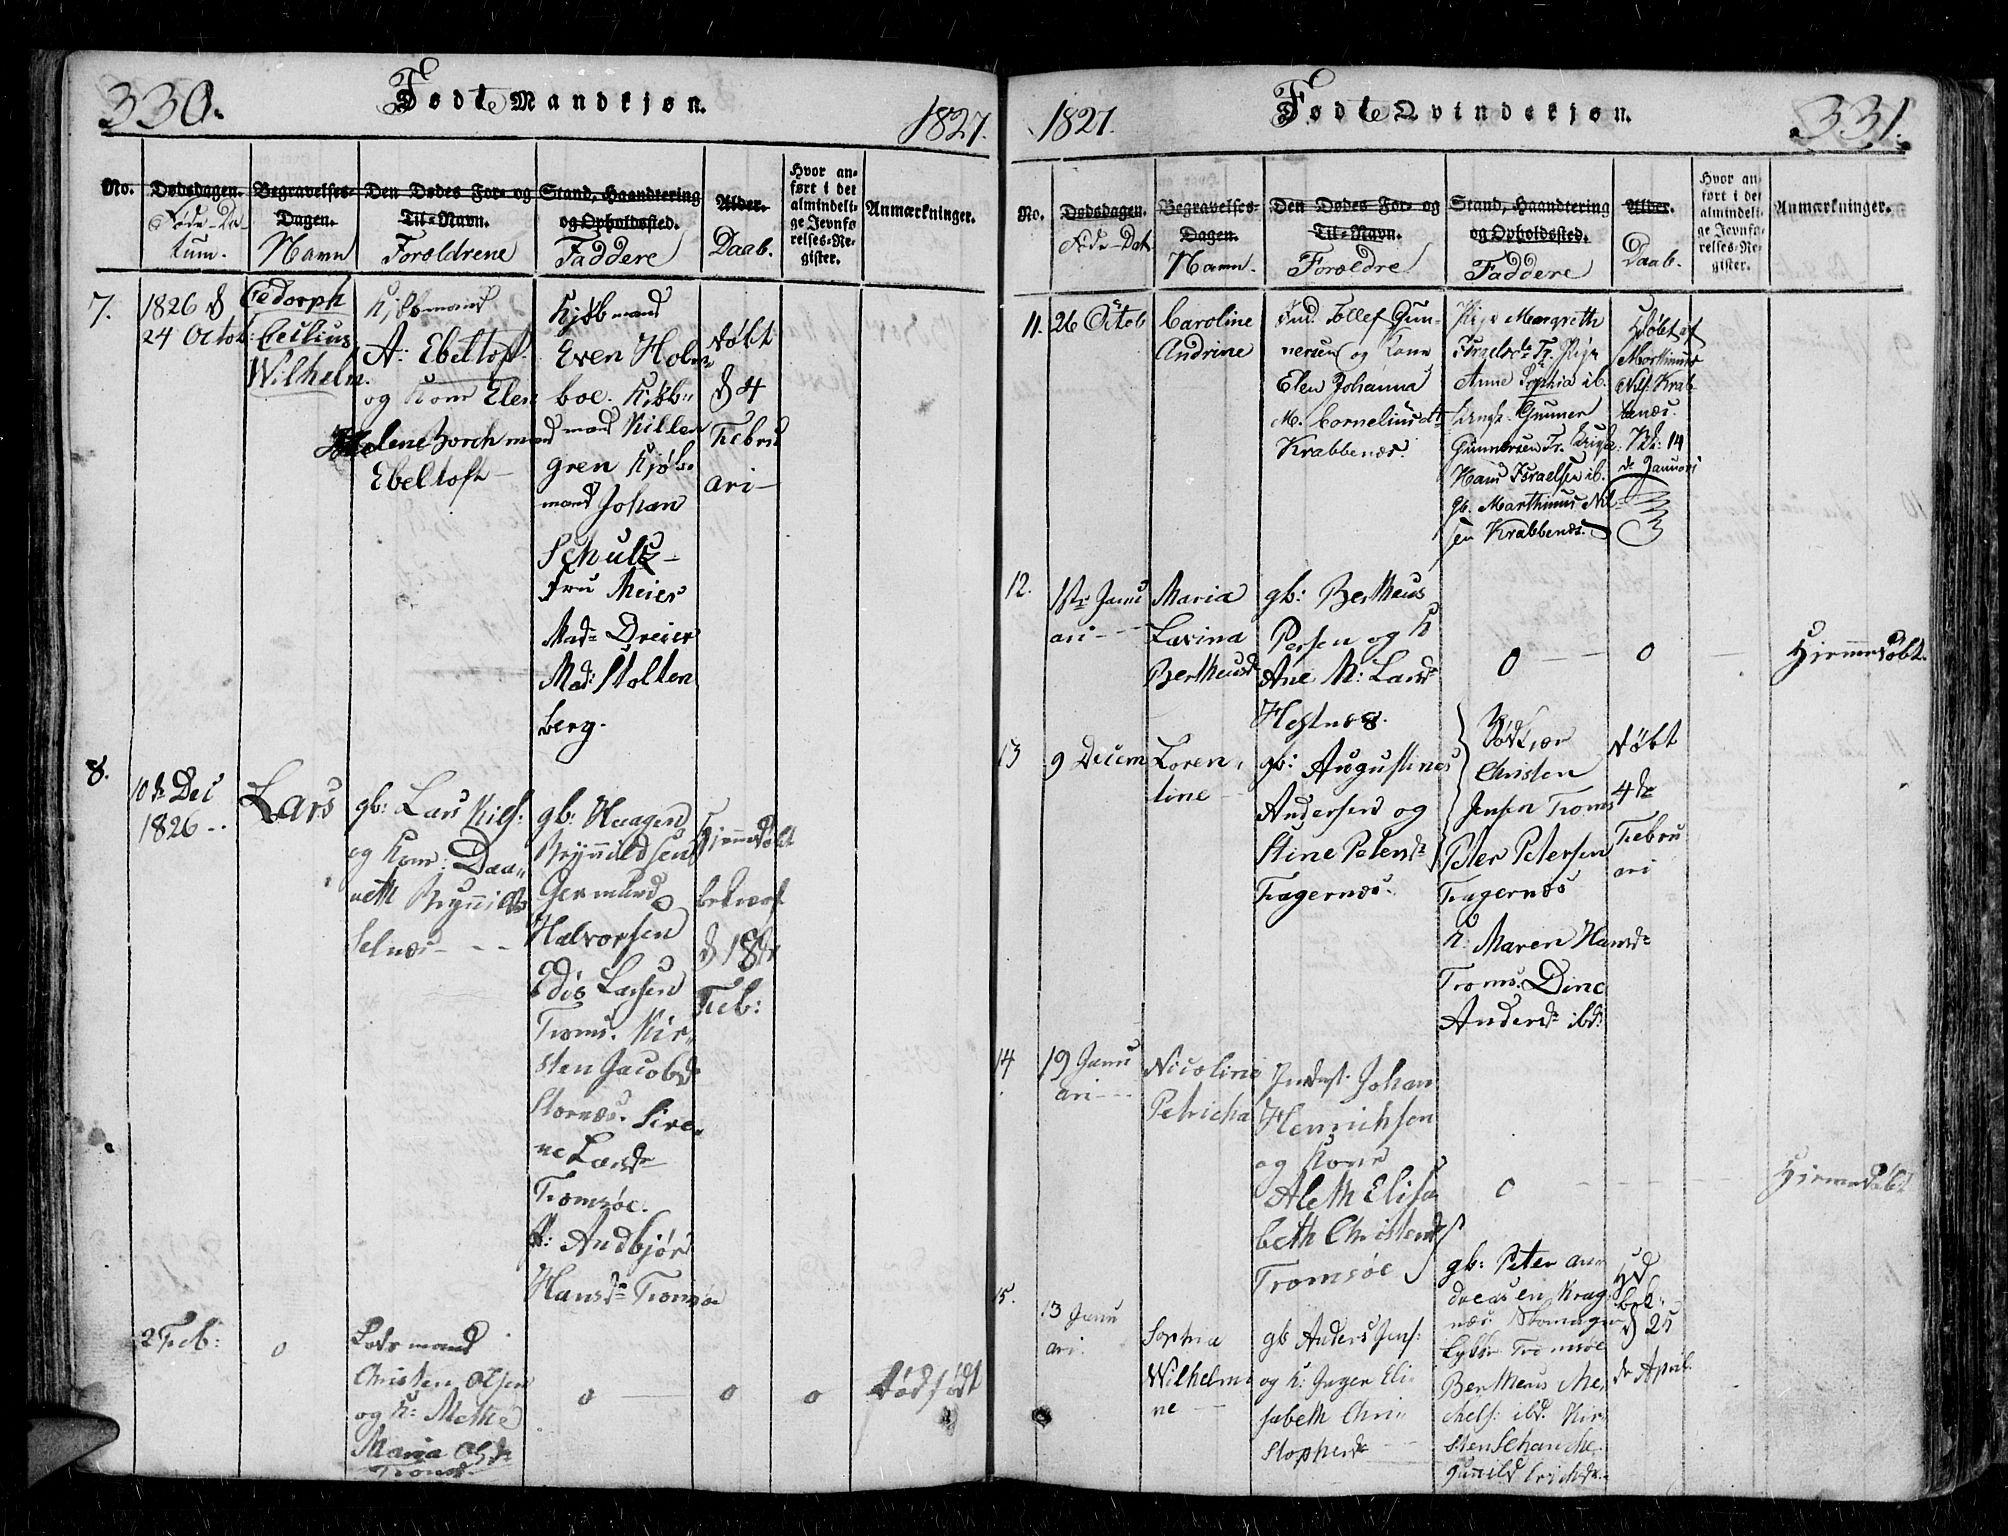 330.
Födte Mandkjøn.
1827.
No.
Dødsdagen.
Føde-Da-
tum.
Begravelses-
Dagen.
Navn
Den Dødes For- og
Til-Navn.
Forældrene
Stand, Haandtering
og Opholdssted.
Faddere
Alder.
Daab.
Hvor an-
ført i det
almindeli-
ge Jevnfø
relses-Re-
gister.
Anmærkninger.
7.
1826 d
24 Octob:
Cecilius
Wilhelm.
Kjøbmand
A: Ebeltoft
og Kone Elen
Helene Borch
Ebeltoft
Kjøbmand
Even Holm
boe. Kjøb-
mand Killen
gren Kjøb-
mand Johan
Schultz
Fru Meier
Mad: Dreier
Mad: Stolten
berg.
døbt
d 4
Febru
ari
8.
10de Dec
1826
Lars
gb: Lars Nils:
og Kone:
Brynnilds
Selnæs
gb: Haagen
Brynnildsen
Germund
Halvorsen
Larsen
Troms. Kir
sten Jacobsd
Stornæs. Sire
ne Larsd
Tromsøe.
P: Andbjør
Hansd Tromsøe
Hjemmedøbt
bekræft
d 18de
Feb:
2 Feb:
0
Lodsmand
Christen Olsen
og K: Methe
Maria Olsd
Tromsøe
0
0
0
dødfødt
1827.
Födte Qvindekjøn.
331.
No.
Dødsdagen.
Føde-Dat.
Begravelses-
Dagen.
Navn.
Den Dødes For- og
Til-Navn.
Forældre
Stand, Haandtering
og Opholdssted.
Faddere
Alder.
Daab.
Hvor an-
ført i det
almindeli-
ge Jevnfø-
relses-Re-
gister.
Anmærkninger.
11.
26 Octob
Caroline
Andrine
Ind. Tollef Gun-
nersen og Kone
Elen Johanna
M. Corneliusdt
Krabbenæs.
Pige Margreth
Israelsdt Tr. Pige
Anne Sophia ib.
Ungk. Gunner
Gunnersen Tr.
Hans Israelsen ib.
gb. Marthinus Nil
sen Krabbenæs.
Hdøbt af
Marthinus
Nils: Krab
benæs.
14
de Januari
12.
1ste Janu
ari
Maria
Lavina
Bertheusd
gb: Bertheus
Persen og K
Ane M: Larsd
Hestnæs.
0
0
Hjemmedøbt.
13
9 Decem
Loren
tine
gb: Augustinus
Andersen og
Stine Petersd
Fagernæs.
Christen
Jensen Troms
Peter Petersen
Fagernæs
K. Maren Hansd
Troms. Dine
Andersd ibd:
døbt
4de
Febru
ari
14
19 Janu
ari
Nicoline
Petricha
Indest. Johan
Henrichsen
og Kone
Aleth Elisa
beth Christensd
Tromsøe
0
Hjemmedøbt
15.
13 Janu
ari.
Sophia
Wilhelmi
ne
gb Anders Jens:
og K: Inger Eli
sabeth Chri
stophersd
gb: Peter An
dreasen Krag
næs
Lykke Tromsøe
Bertheus Mi
chels: ibd. Kir
sten Schanche
Gunild Erichsd
Hd
bek:
d 25
de April